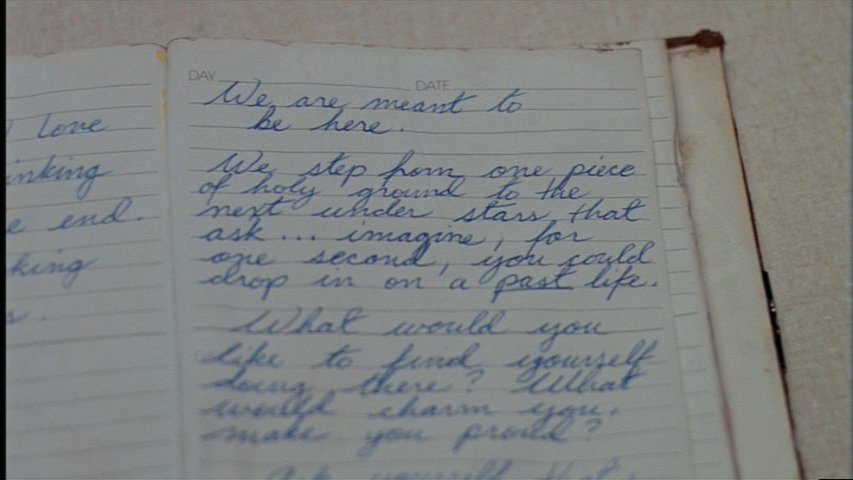 love
inking
e end.
king
DAY DATE
We are meant to
be here.
We step from one piece
of holy ground to the
next under stars that
ask... imagine, for
one second, you could
drop in on a past life.
What would you
like to find yourself
doing there? What
would charm you,
make you proud?
Ask yourself that